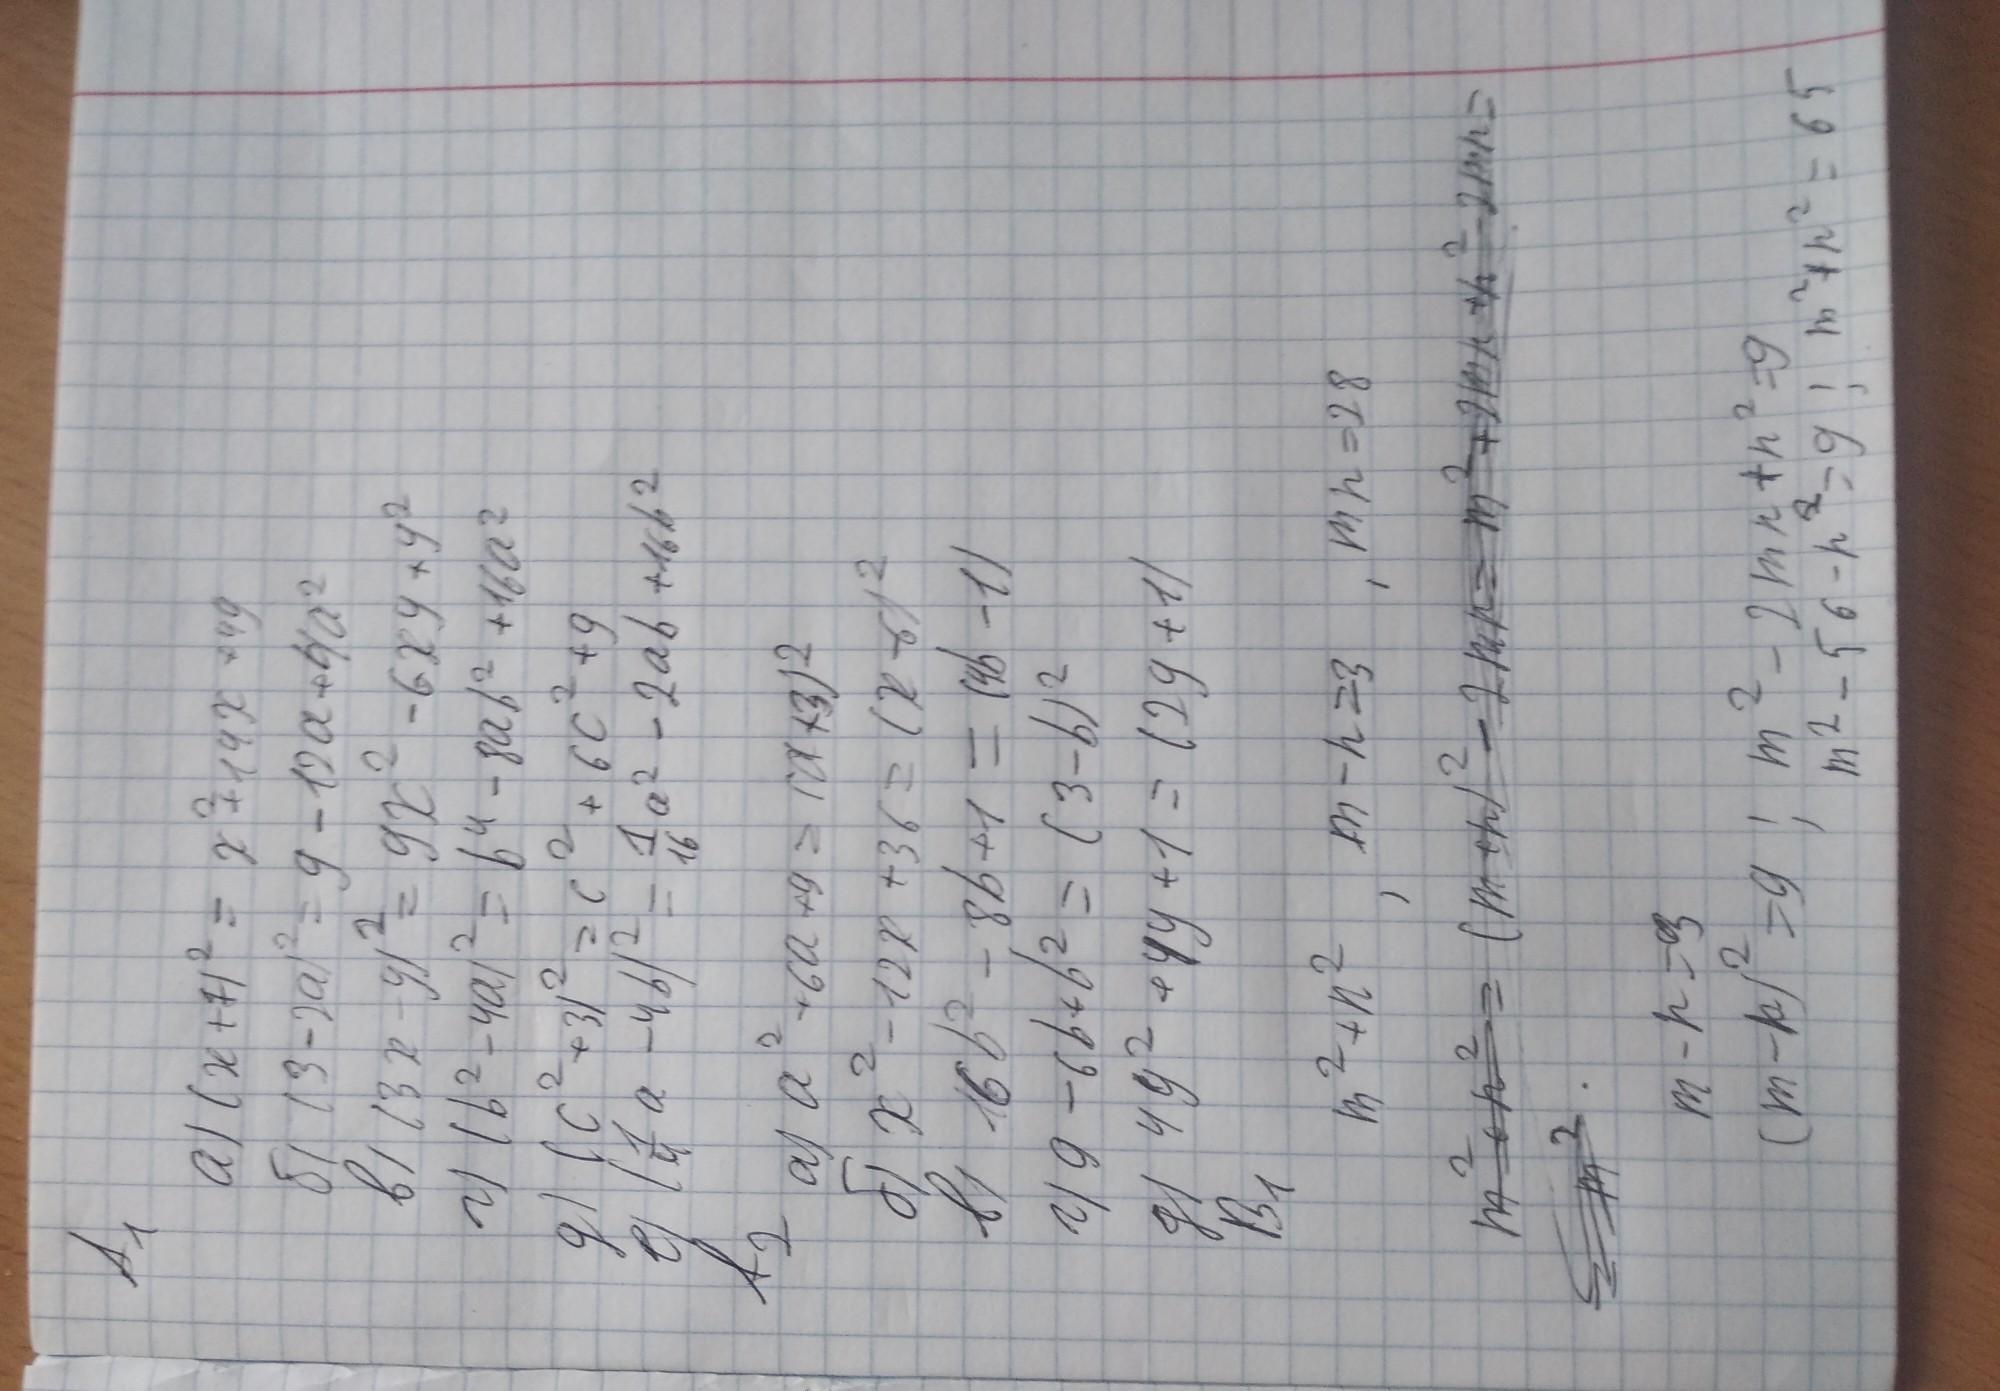 A1
а) (x+7)² = x²+14x+49
б) (3-2a)² = 9-12a+4a²
в) (3x-y)² = 9x²-6xy+y²
г) (b²-4a)² = b4-8ab²+16a²
д) (c²+3)² = c²+6c²+9
е) (1/4a-4b)² = 1/16a²-2ab+16b²
A2
а) a²+6a+9=(a+3)²
б) x²-12x+36=(x-6)²
в) 16b²-8b+1=(4b-1)
г) 9-6b+b²=(3-b)²
д) 4y²+4y+1=(2y+1)
B1
m²+n², m-n=3, mn=28
m²+n²=(m+n)²-2mn=m²+2mn+n²-2mn=
m²
m-n=3
(m-n)²=9; m²-2mn+n²=9
m²-56-n²=9; m²+n²=65